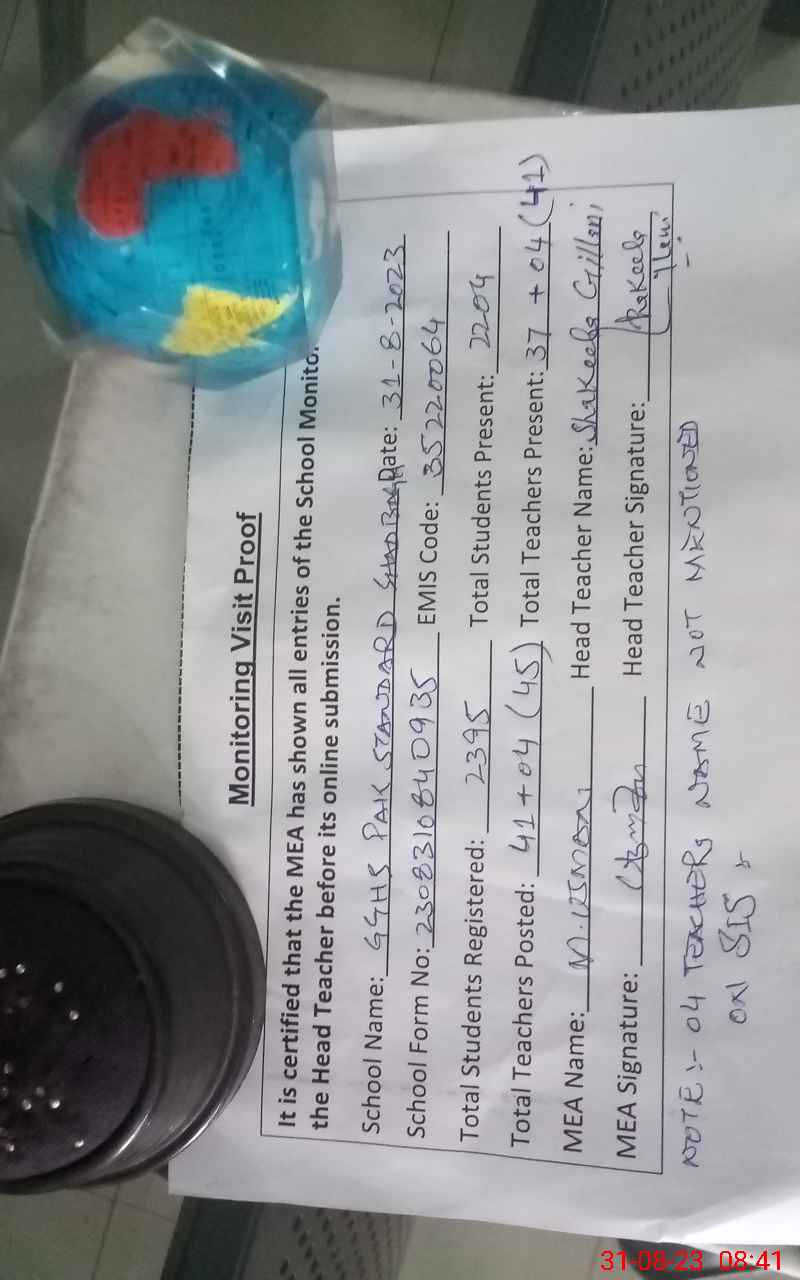 Monitoring Visit Proof
It is certified that the MEA has shown all entries of the School Monito
the Head Teacher before its online submission.
School Name: GGHS PAK STANDARD SHAD BAGH Date: 31-8-2023
School Form No: 230831084 0935 EMIS Code: 35220064
Total Students Registered: 2395 Total Students Present: 2204
Total Teachers Posted: 41+04 (45) Total Teachers Present: 37 +04 (41)
MEA Name: M.USMAN Head Teacher Name: Shakeela Gillani
MEA Signature: Head Teacher Signature: Shakeela
NOTE:- 04 TEACHERS NAME NOT MENTIONED
ON SIS
31-08-23 08:41